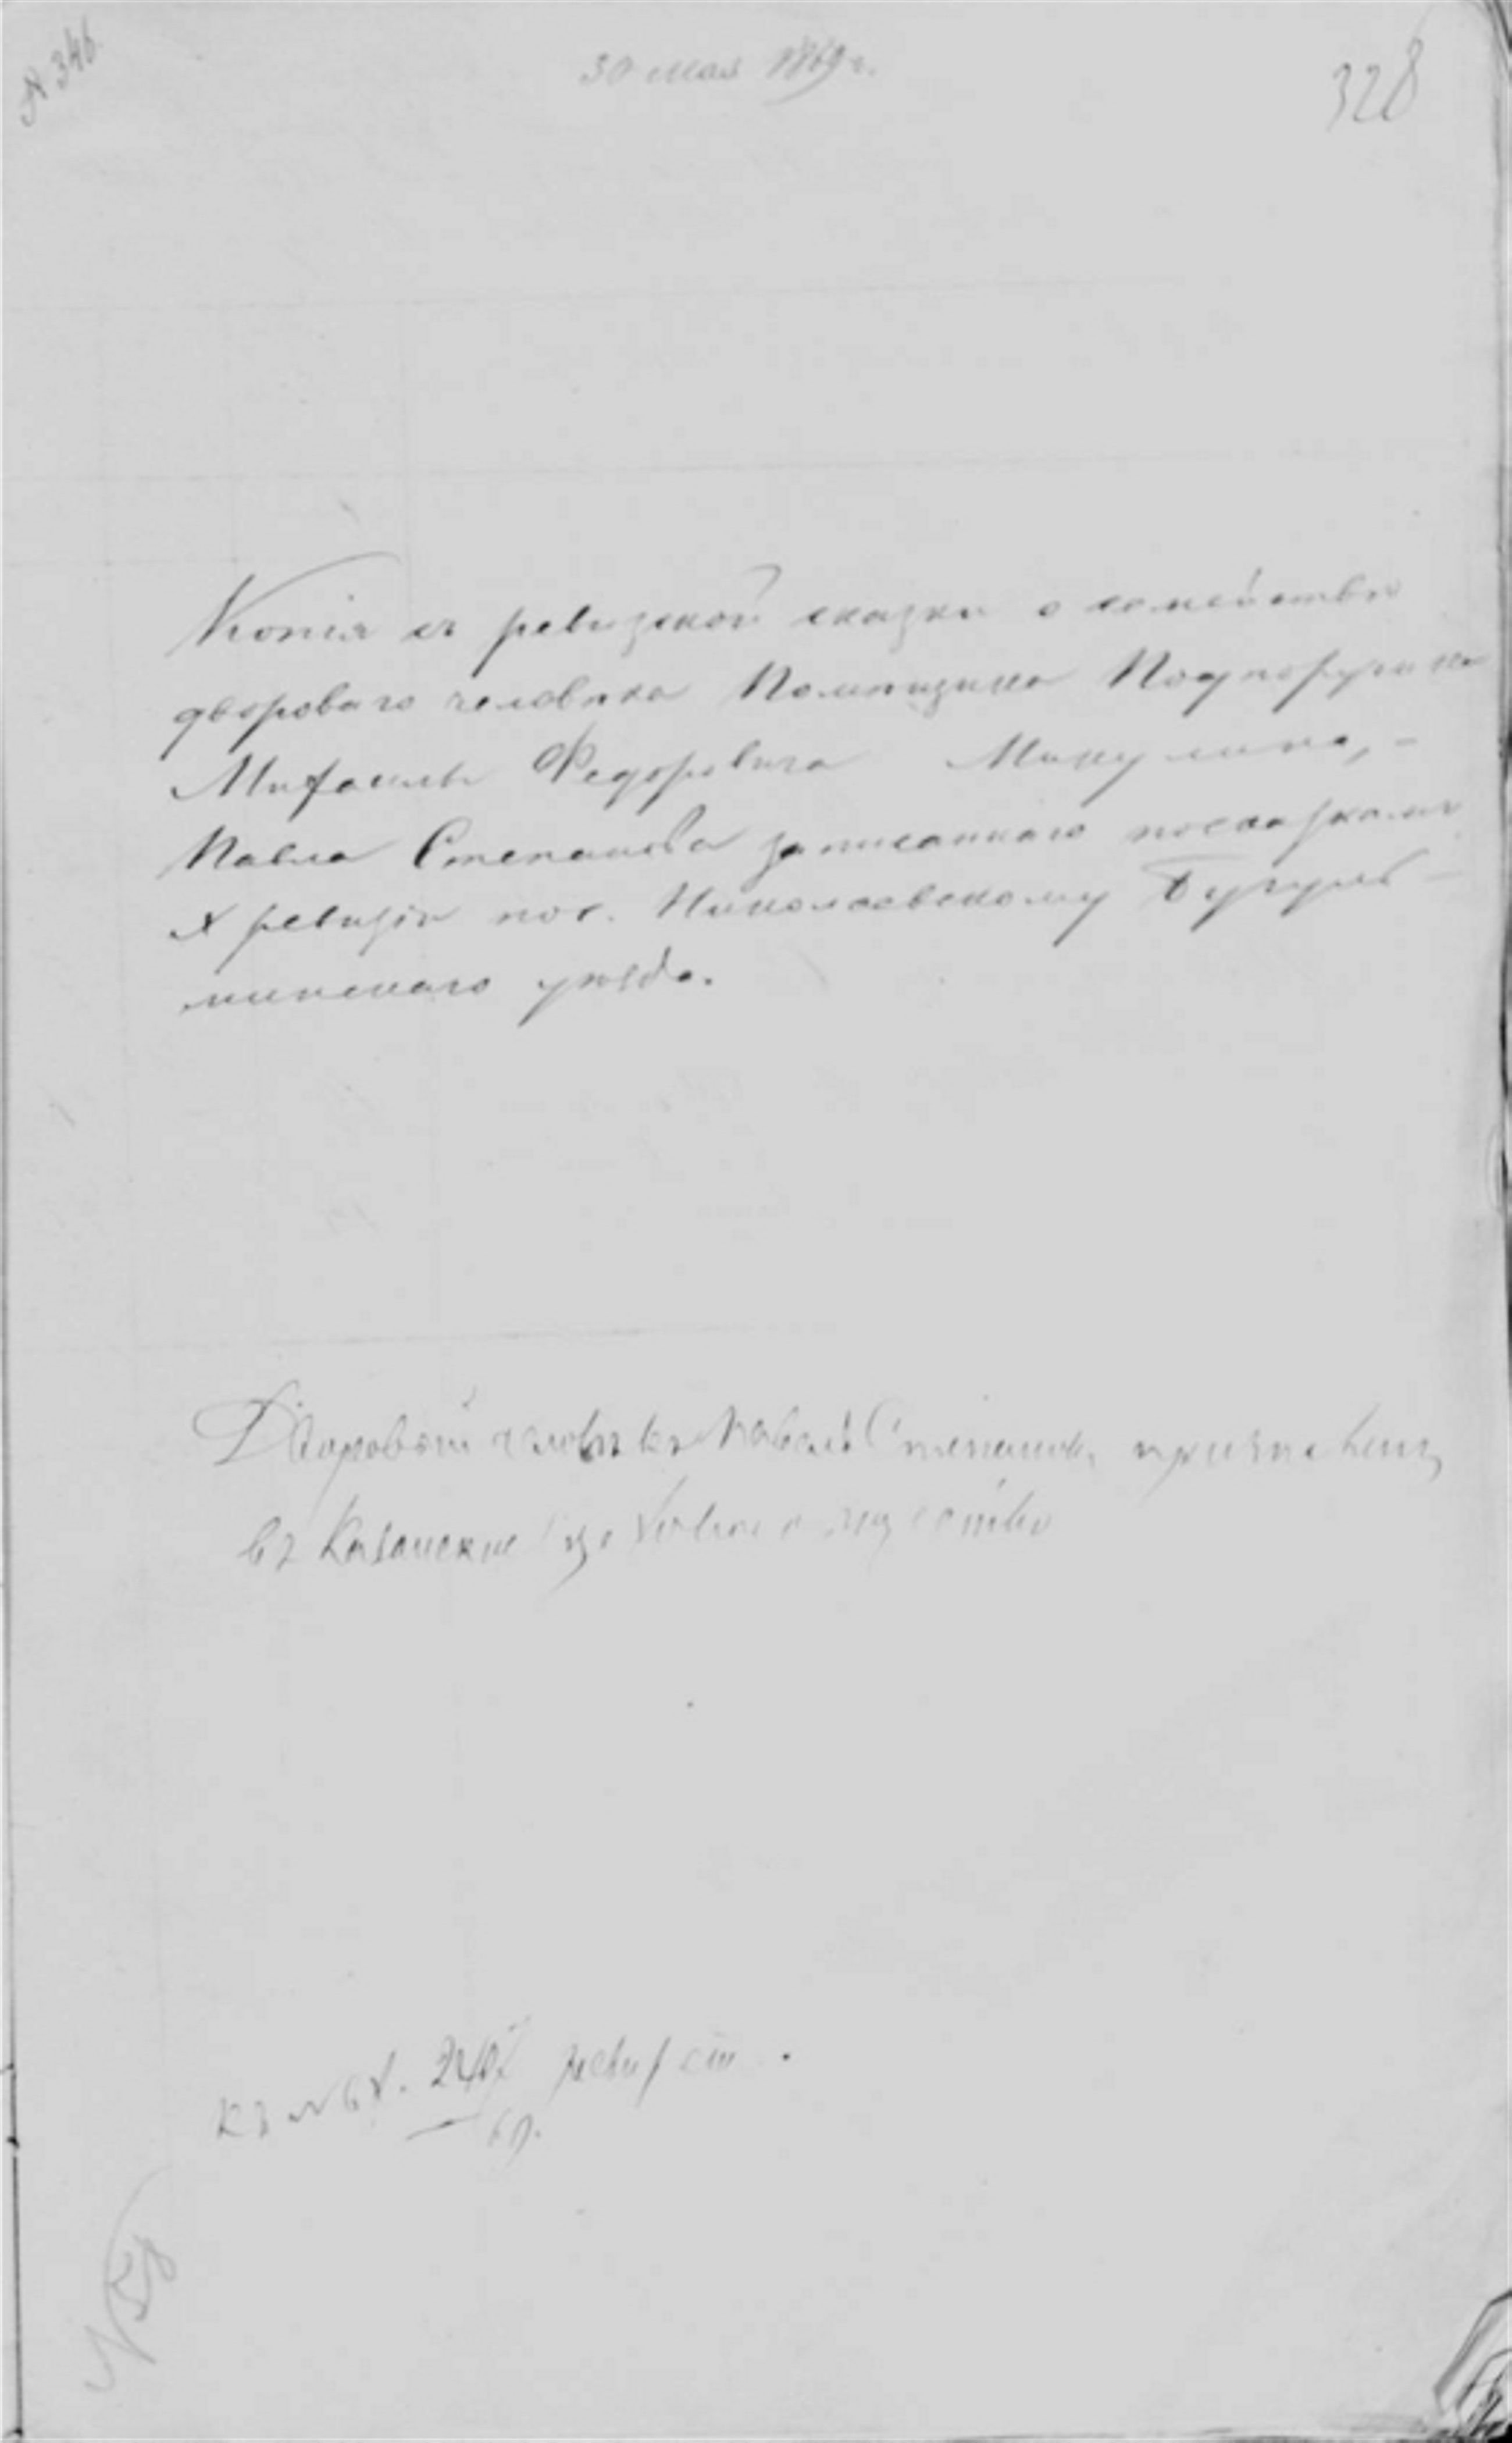 № 346.
30 мая 1869 г.
328
Копія съ ревизской сказки о семействѣ
двороваго человѣка Помѣщика Подпоручика
Михаила Федоровича Микулина, -
Павла Степанова записаннаго по сказкамъ
X ревизіи по с. Николаевскому Бугуль-
минскаго уѣзда.
Дворовый человѣкъ Павелъ Степановъ причисленъ
въ Казанское
къ № вх. ревиз ст.
69.
№ 58